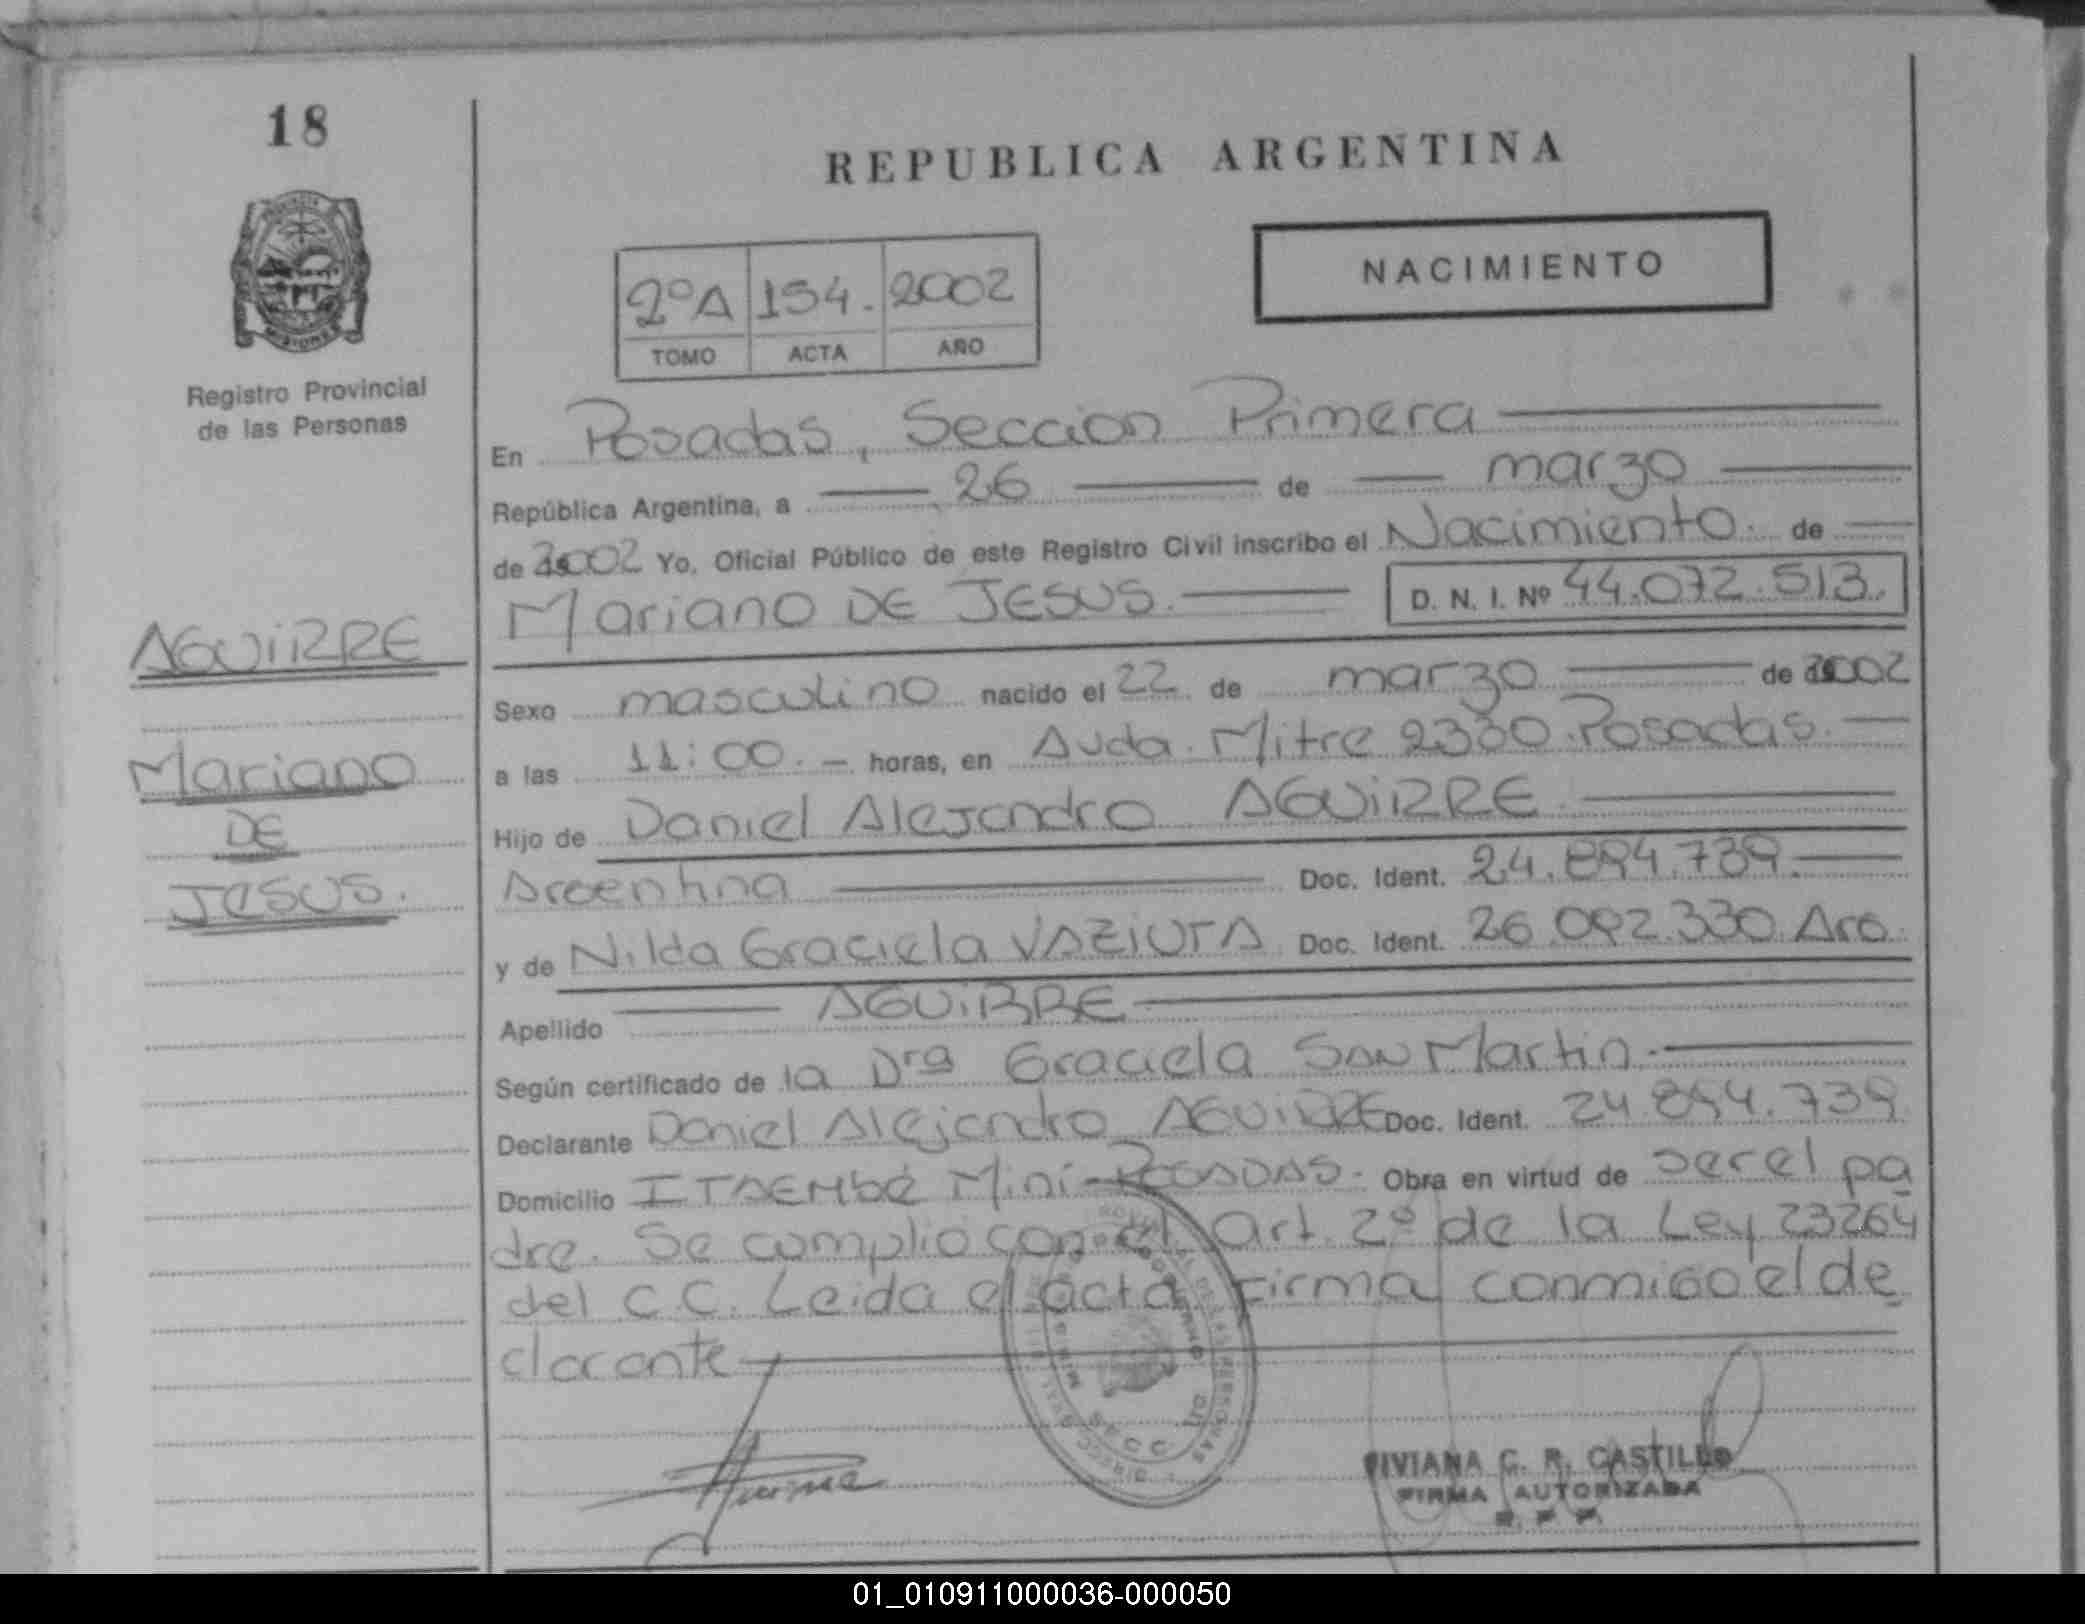 18
REPUBLICA ARGENTINA
NACIMIENTO
2ºA 154. 2002
TOMO ACTA AÑO
Registro Provincial
de las Personas
En Posadas, Seccion Primera
República Argentina, a 26 de marzo
de 2002 Yo, Oficial Público de este Registro Civil inscribo el Nacimiento de
Mariano DE JESUS. D. N. I. Nº 44.072.513.
AGUiRRE
Mariano
DE
JESUS.
Sexo masculino nacido el 22 de marzo de 2002
a las 11:00.- horas, en Avda. Mitre 2330 Posadas.
Hijo de Daniel Alejandro AGUiRRE
Argentina Doc. Ident. 24.894.739.
y de Nilda Graciela Doc. Ident. 26.092.330 Arg.
Apellido AGUiRRE
Según certificado de la Drª Graciela SAN Martin.
Declarante Daniel Alejandro AGUiRRE Doc. Ident. 24.894.739
Domicilio ITAEMbé Miní-POSADAS. Obra en virtud de ser el pa
dre. Se cumplió con el art. 2º de la Ley 23264
del C.C. Leida el acta firma conmigo el de
clarante
SECC
VIVIANA G. R. CASTILLO
FIRMA AUTORIZADA
01_010911000036-000050